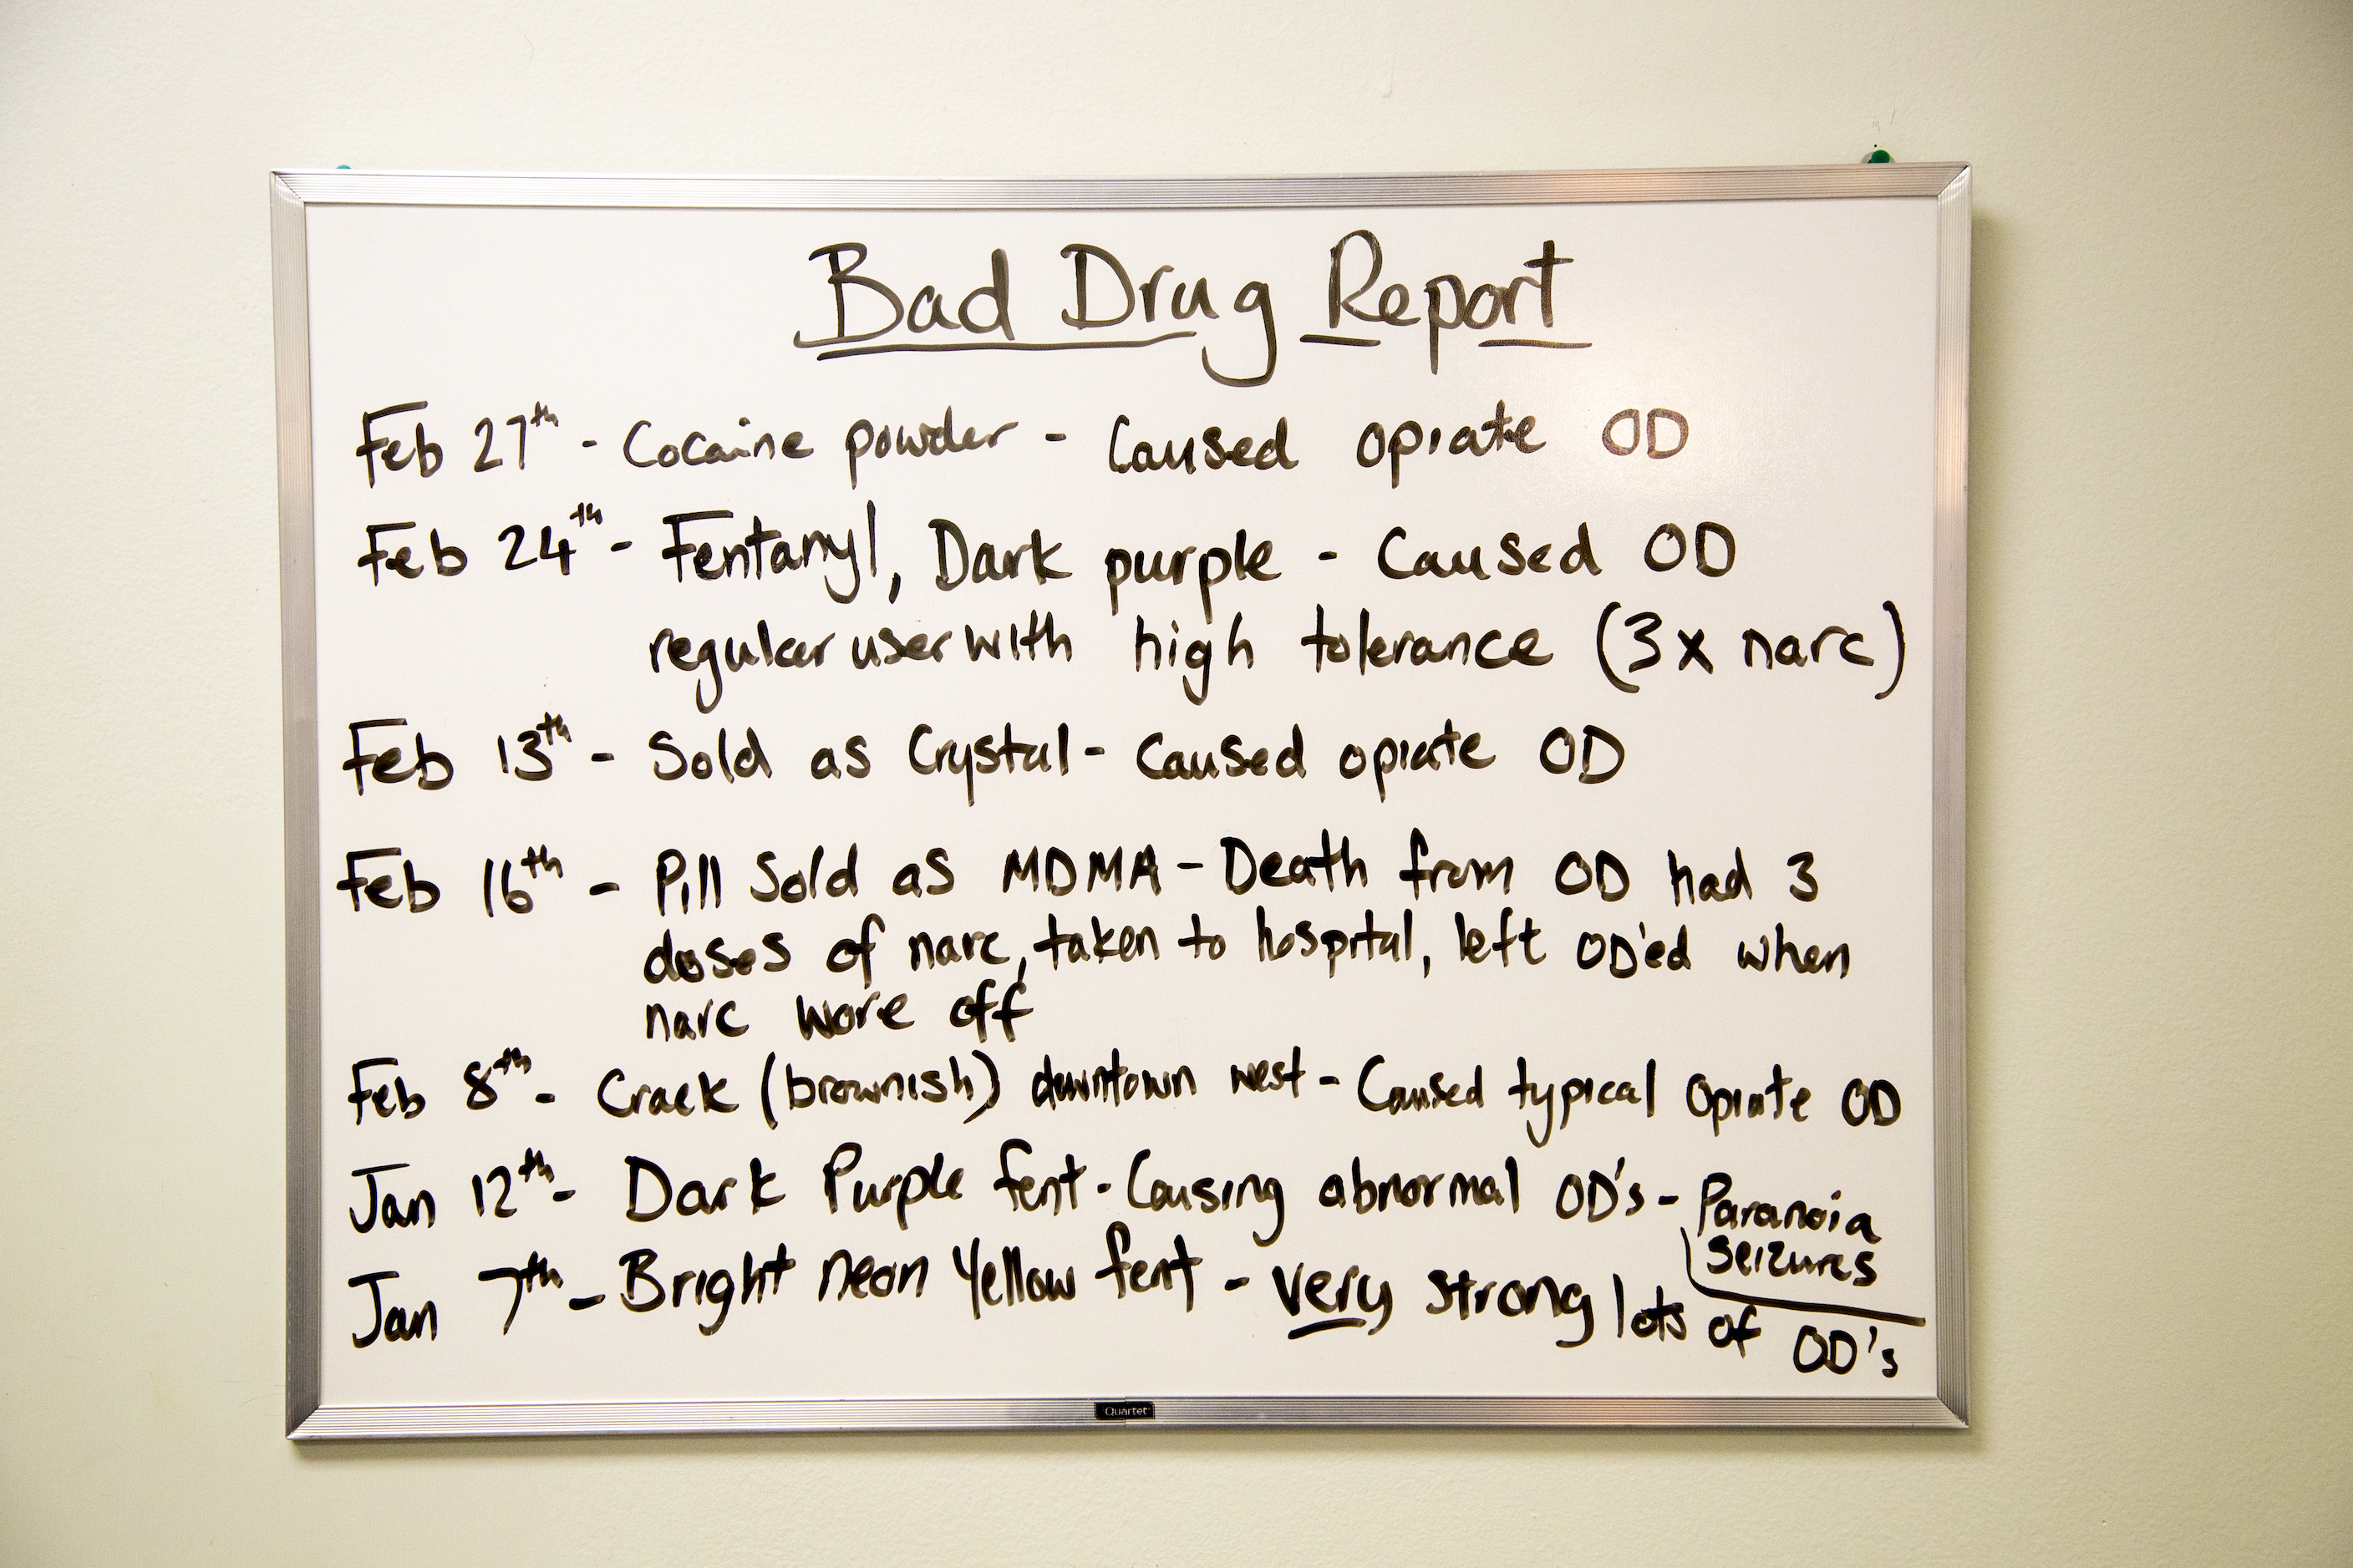 Bad Drug Report
Feb 27th - Cocaine powder - Caused opiate OD
Feb 24th - Fentanyl, Dark purple - Caused OD
regular user with high tolerance (3x narc)
Feb 13th - Sold as Crystal - Caused opiate OD
Feb 16th - Pill Sold as MDMA - Death from OD had 3
doses of narc, taken to hospital, left OD'ed when
narc wore off
Feb 8th - Crack (brownish) downtown west - Caused typical Opiate OD
Jan 12th - Dark Purple fent - Causing abnormal OD's - Paranoia
Seizures
Jan 7th - Bright neon Yellow fent - very strong lots of OD's
Quartet